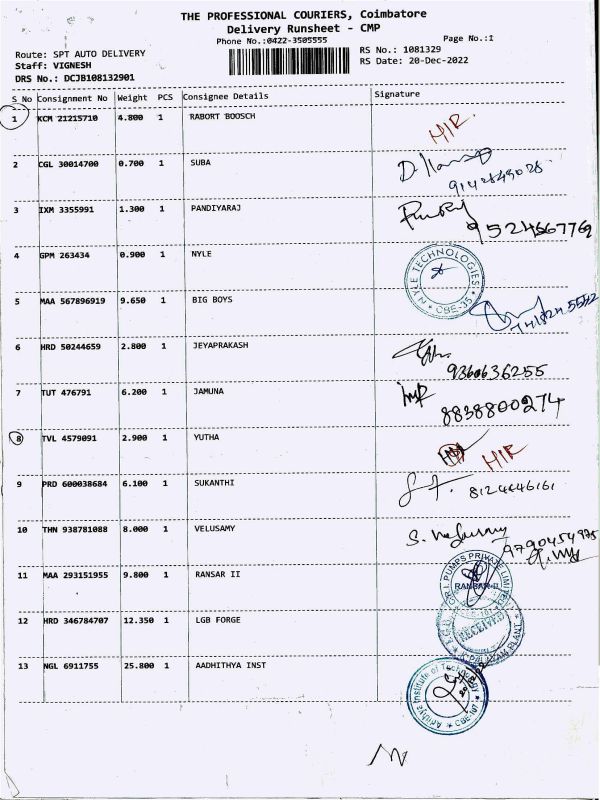 THE PROFESSIONAL COURIERS, Coimbatore
Delivery Runsheet - CMP
Phone No.:0422-3505555
Page No.:1
Route: SPT AUTO DELIVERY
Staff: VIGNESH
DRS No.: DCJB108132901
RS No.: 1081329
RS Date: 20-Dec-2022
S No Consignment No Weight PCS Consignee Details Signature
1 KCM 21215710 4.800 1 RABORT BOOSCH HIR
2 CGL 30014700 0.700 1 SUBA
3 IXM 3355991 1.300 1 PANDIYARAJ 9524667769
4 GPM 263434 0.900 1 NYLE NYLE TECHNOLOGIES CBE-35
5 MAA 567896919 9.650 1 BIG BOYS
6 HRD 50244659 2.800 1 JEYAPRAKASH 9360636255
7 TUT 476791 6.200 1 JAMUNA 8838800274
8 TVL 4579091 2.900 1 YUTHA HIR
9 PRD 600038684 6.100 1 SUKANTHI 8124646161
10 THN 938781088 8.000 1 VELUSAMY 9790454975
11 MAA 293151955 9.800 1 RANSAR II PUMPS PRIVATE LIMITED RANSAR-II
12 HRD 346784707 12.350 1 LGB FORGE RECEIVED PLANT
13 NGL 6911755 25.800 1 AADHITHYA INST Institute of Technology CBE-107